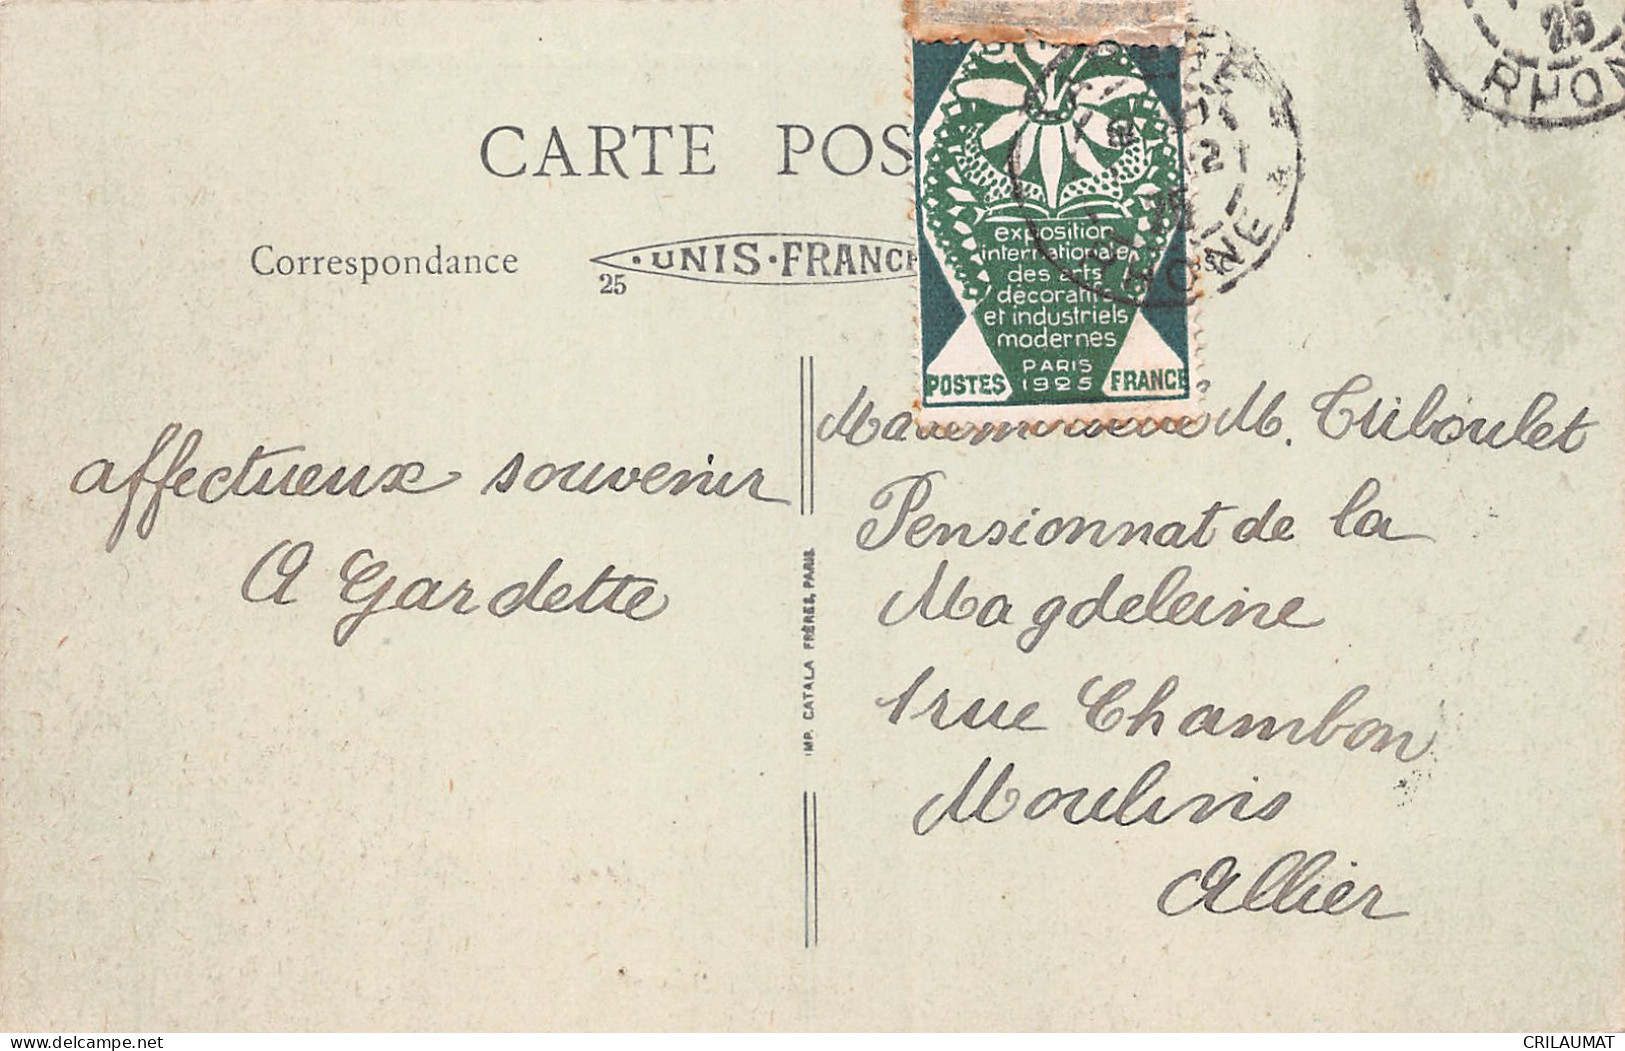 CARTE POS
Correspondance
UNIS-FRANC
25
exposition
internationale
des arts
décoratifs
et industriels
modernes
PARIS
1925
POSTES
FRANCE
RHONE
25
RHON
affectueux souvenir
A Gardette
IMP. CATALA FRÈRES, PARIS.
Mademoiselle M. Triboulet
Pensionnat de la
Magdeleine
1 rue Chambon
Moulins
Allier
delcampe.net
CRILAUMAT